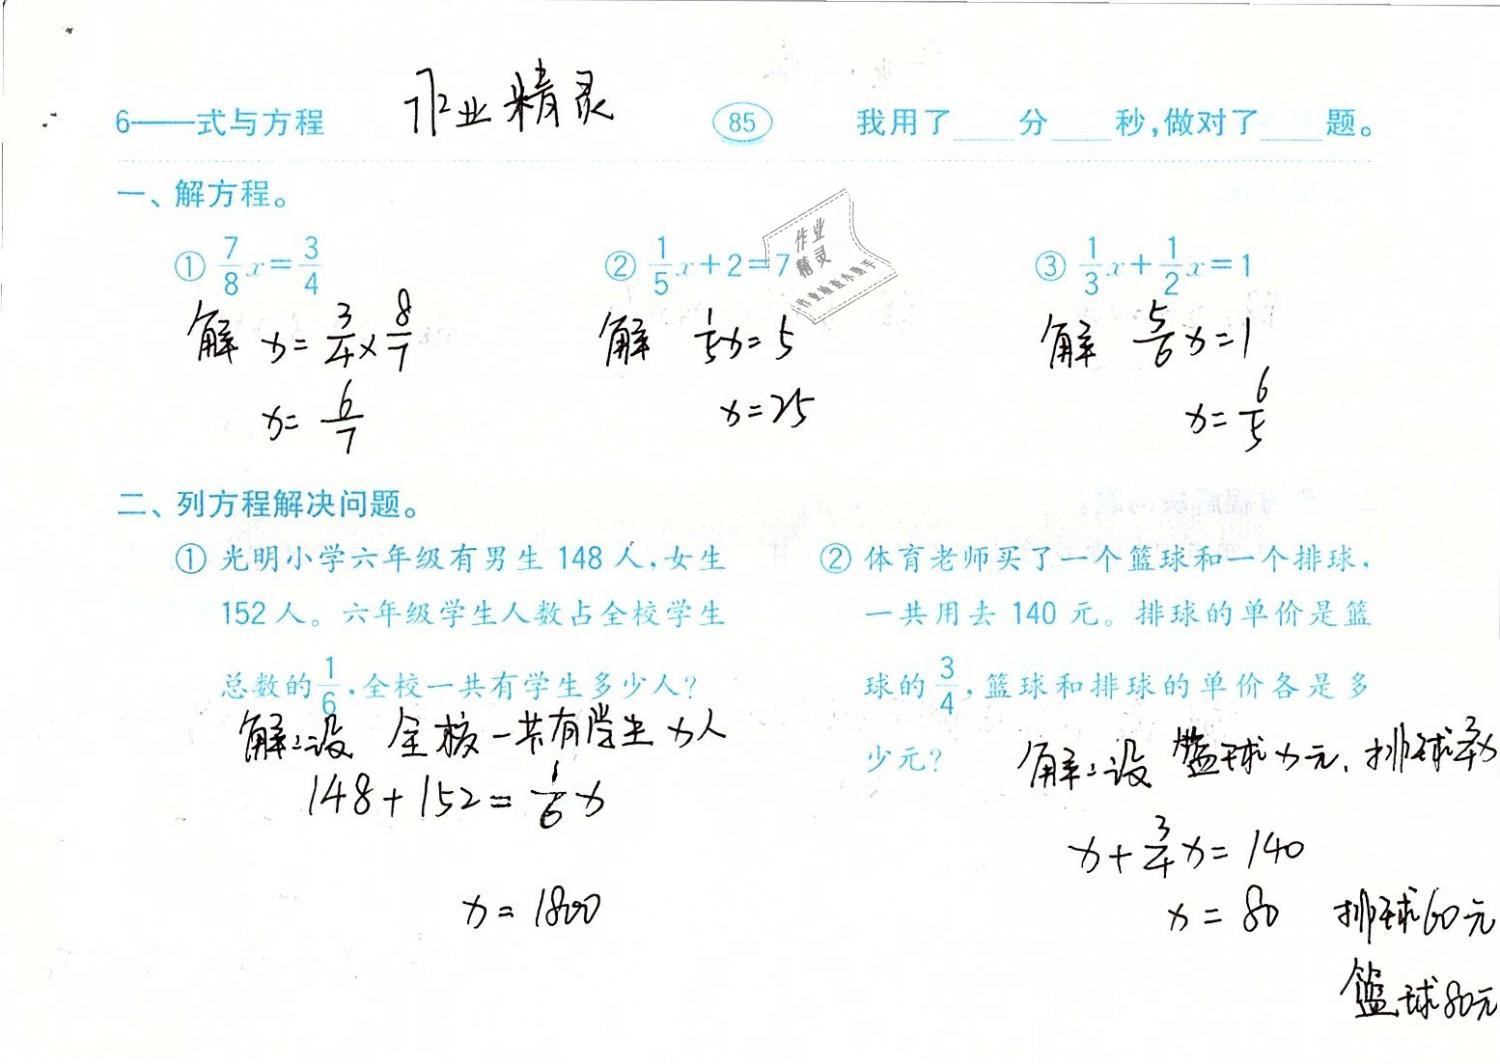 6——式与方程 作业精灵 85 我用了____分____秒,做对了____题。
一、解方程。
① 7/8 x=3/4 ② 1/5 x+2=7 ③ 1/3 x+1/2 x=1
作业
精灵
解 x=3/4×8/7 解 1/5 x=5 解 5/6 x=1
x=6/7 x=25 x=6/5
二、列方程解决问题。
① 光明小学六年级有男生 148 人,女生
152 人。六年级学生人数占全校学生
总数的1/6,全校一共有学生多少人?
解:设 全校一共有学生 x人
148+152=1/6 x
x=1800
② 体育老师买了一个篮球和一个排球,
一共用去 140 元。排球的单价是篮
球的3/4,篮球和排球的单价各是多
少元?
解:设 篮球x元、排球3/4x
x+3/4 x=140
x=80 排球60元
篮球80元